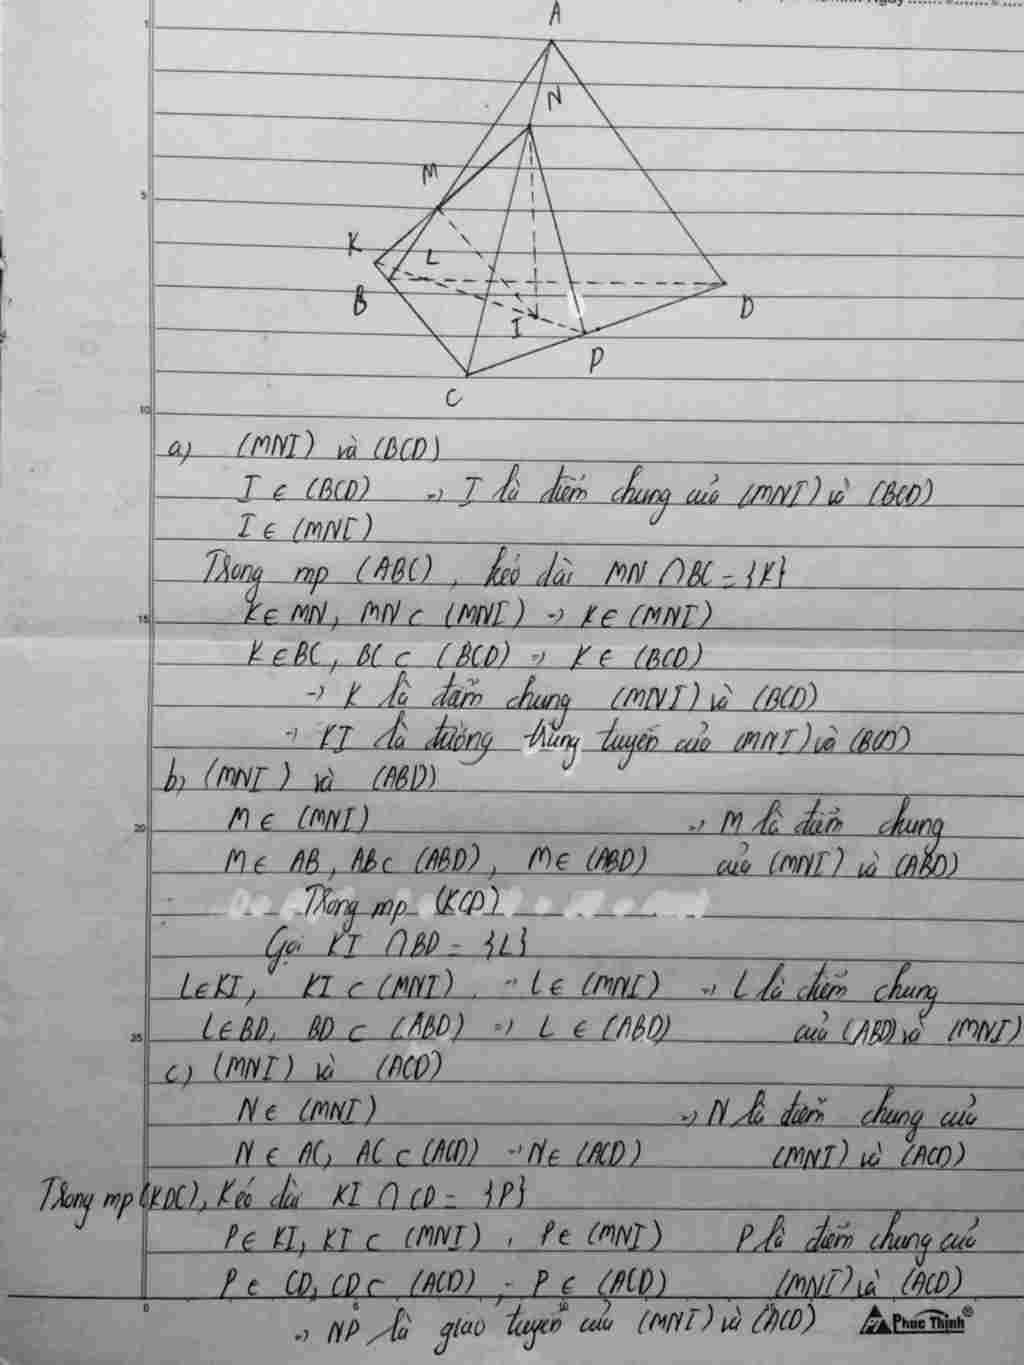 A
N
M
K
L
B
D
I
P
C
1
5
10
15
20
25
a) (MNI) và (BCD)
I ∈ (BCD) → I là điểm chung của (MNI) và (BCD)
I ∈ (MNI)
Trong mp (ABC), kéo dài MN ∩ BC = {K}
K ∈ MN, MN ⊂ (MNI) → K ∈ (MNI)
K ∈ BC, BC ⊂ (BCD) → K ∈ (BCD)
→ K là điểm chung (MNI) và (BCD)
→ KI là đường trung tuyến của (MNI) và (BCD)
b) (MNI) và (ABD)
M ∈ (MNI) → M là điểm chung
M ∈ AB, AB ⊂ (ABD), M ∈ (ABD) của (MNI) và (ABD)
Trong mp (KCD)
Gọi KI ∩ BD = {L}
L ∈ KI, KI ⊂ (MNI) → L ∈ (MNI) → L là điểm chung
L ∈ BD, BD ⊂ (ABD) → L ∈ (ABD) của (ABD) và (MNI)
c) (MNI) và (ACD)
N ∈ (MNI) → N là điểm chung của
N ∈ AC, AC ⊂ (ACD) → N ∈ (ACD) (MNI) và (ACD)
Trong mp (KDC), Kéo dài KI ∩ CD = {P}
P ∈ KI, KI ⊂ (MNI), P ∈ (MNI) P là điểm chung của
P ∈ CD, CD ⊂ (ACD) - P ∈ (ACD) (MNI) và (ACD)
→ NP là giao tuyến của (MNI) và (ACD)
Phuc Thinh®